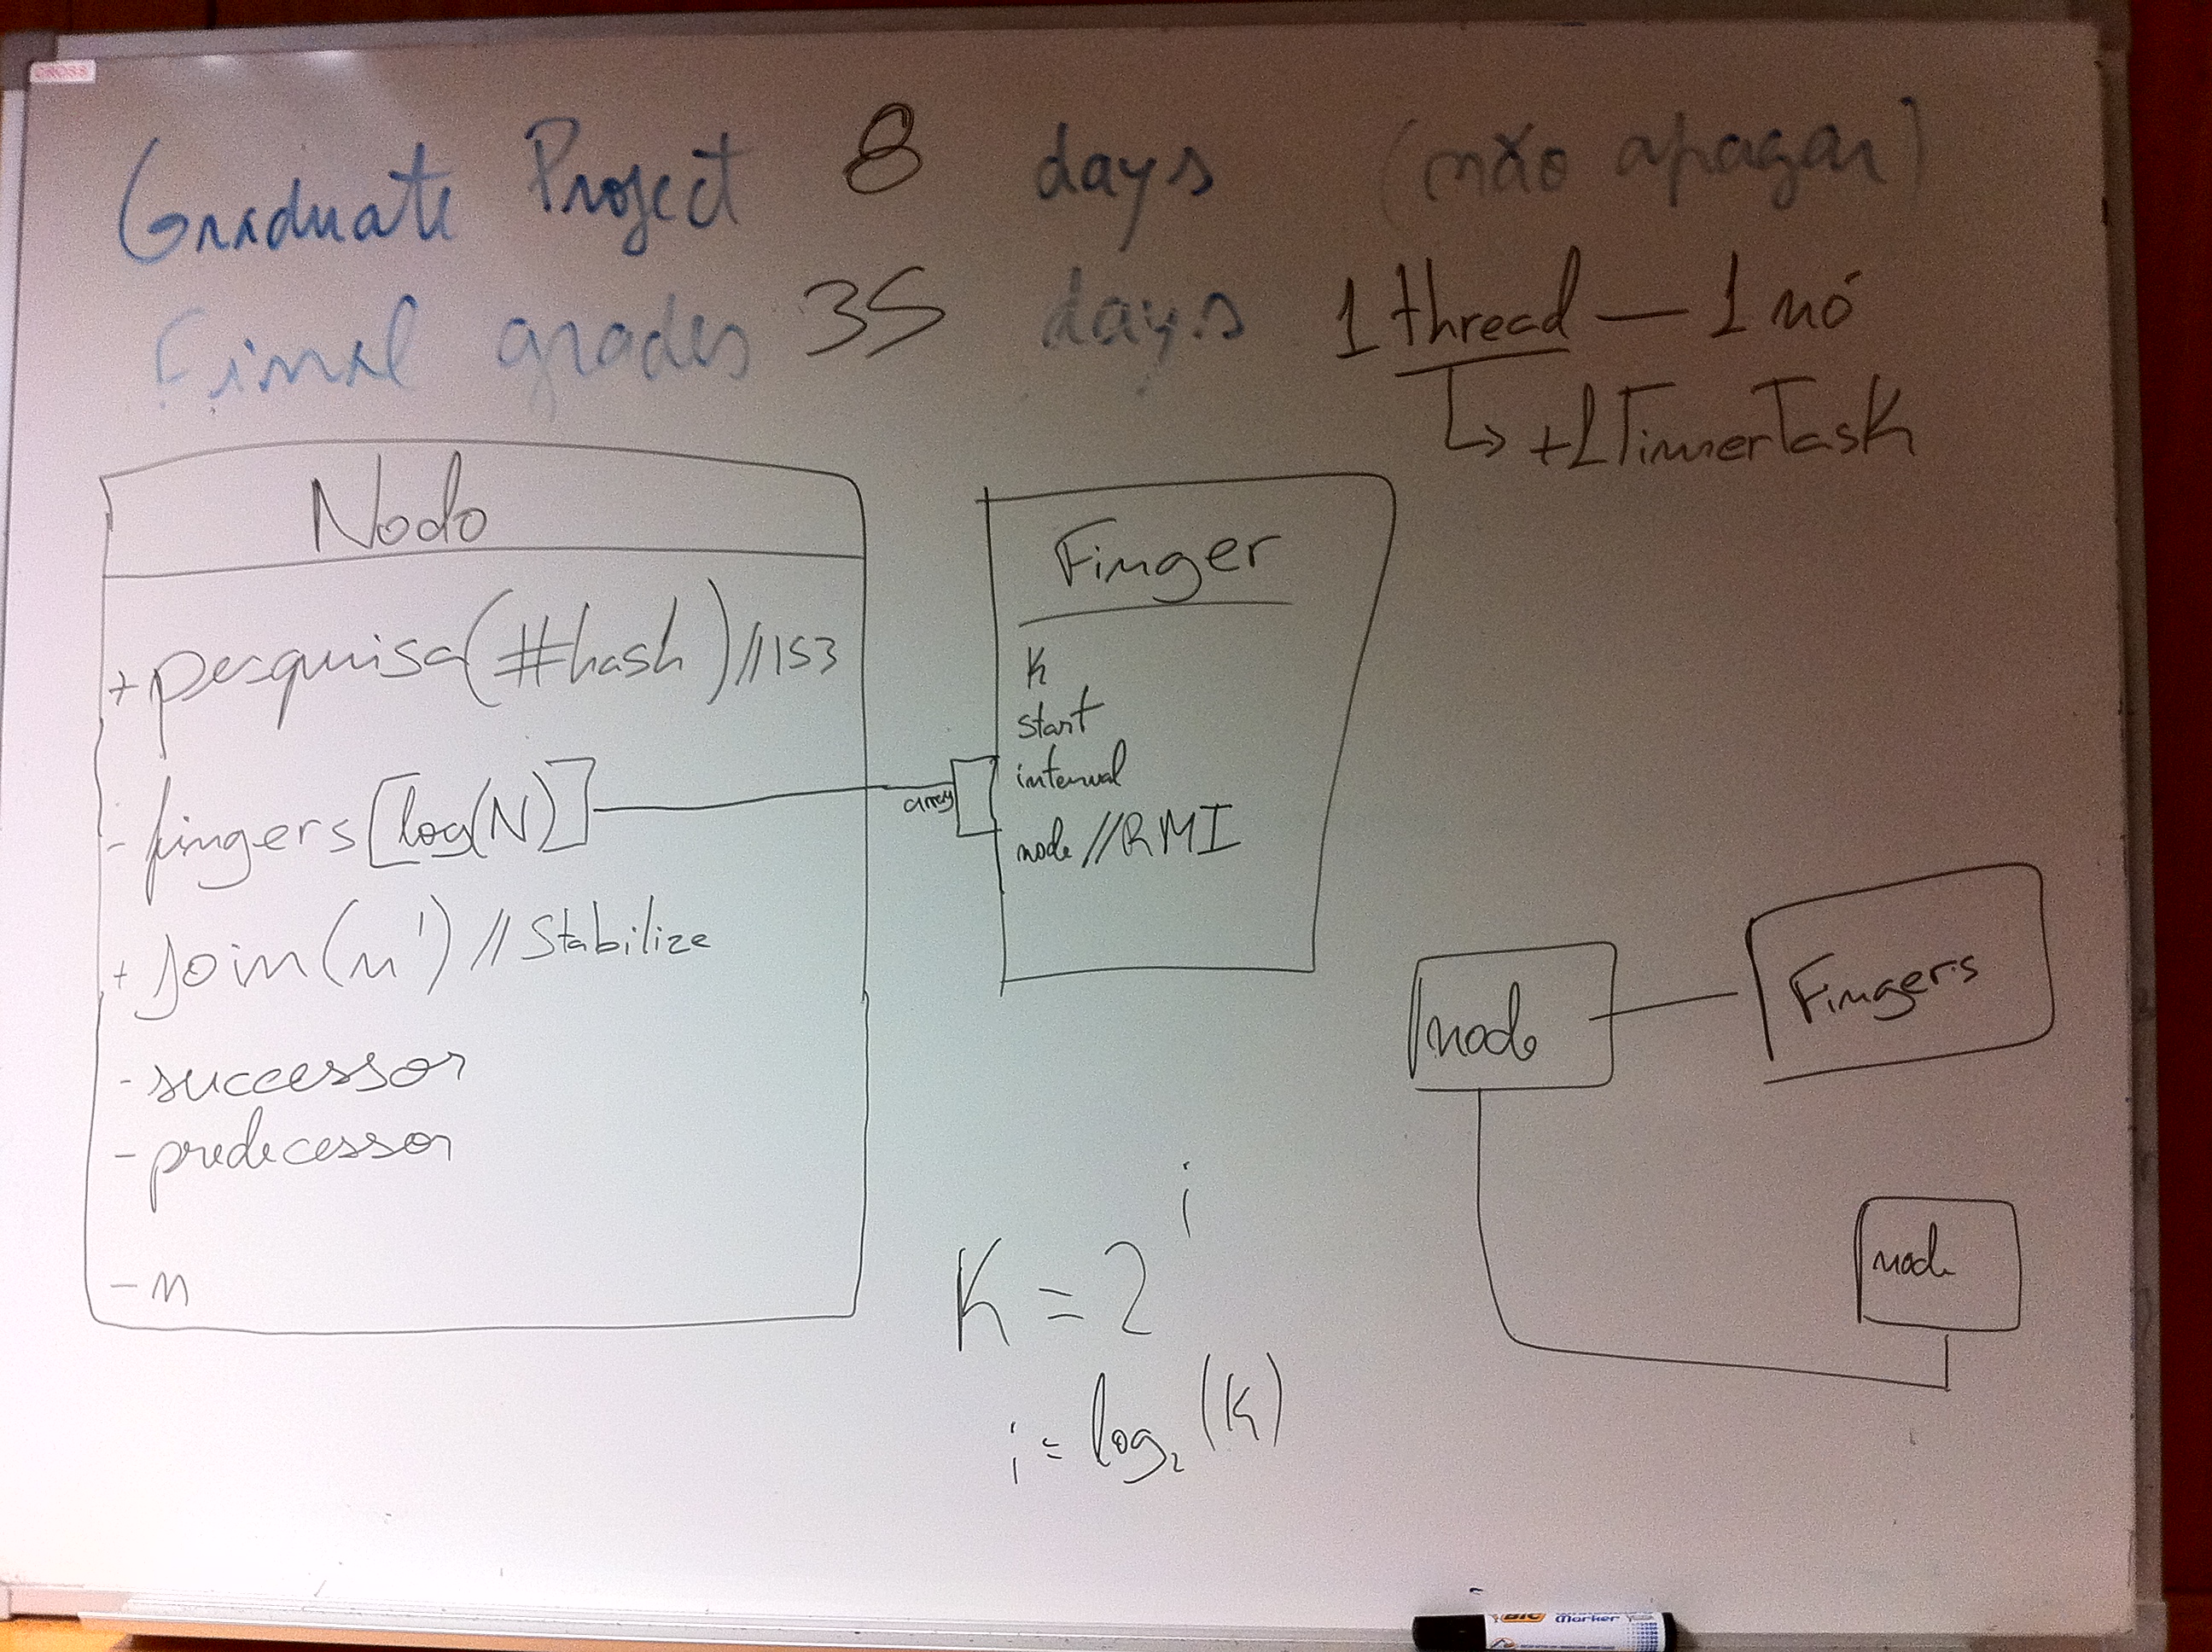 CROSS
Graduate Project 8 days (não apagar)
Final grades 35 days
1 thread — 1 nó
↳ +1 TimerTask
Nodo
+ pesquisa(#hash) //153
- fingers [log(N)]
+ join(n') // Stabilize
- successor
- predecessor
- n
array
Finger
k
start
interval
node // RMI
node
Fingers
node
K = 2^i
i = log₂(K)
BIC Marker